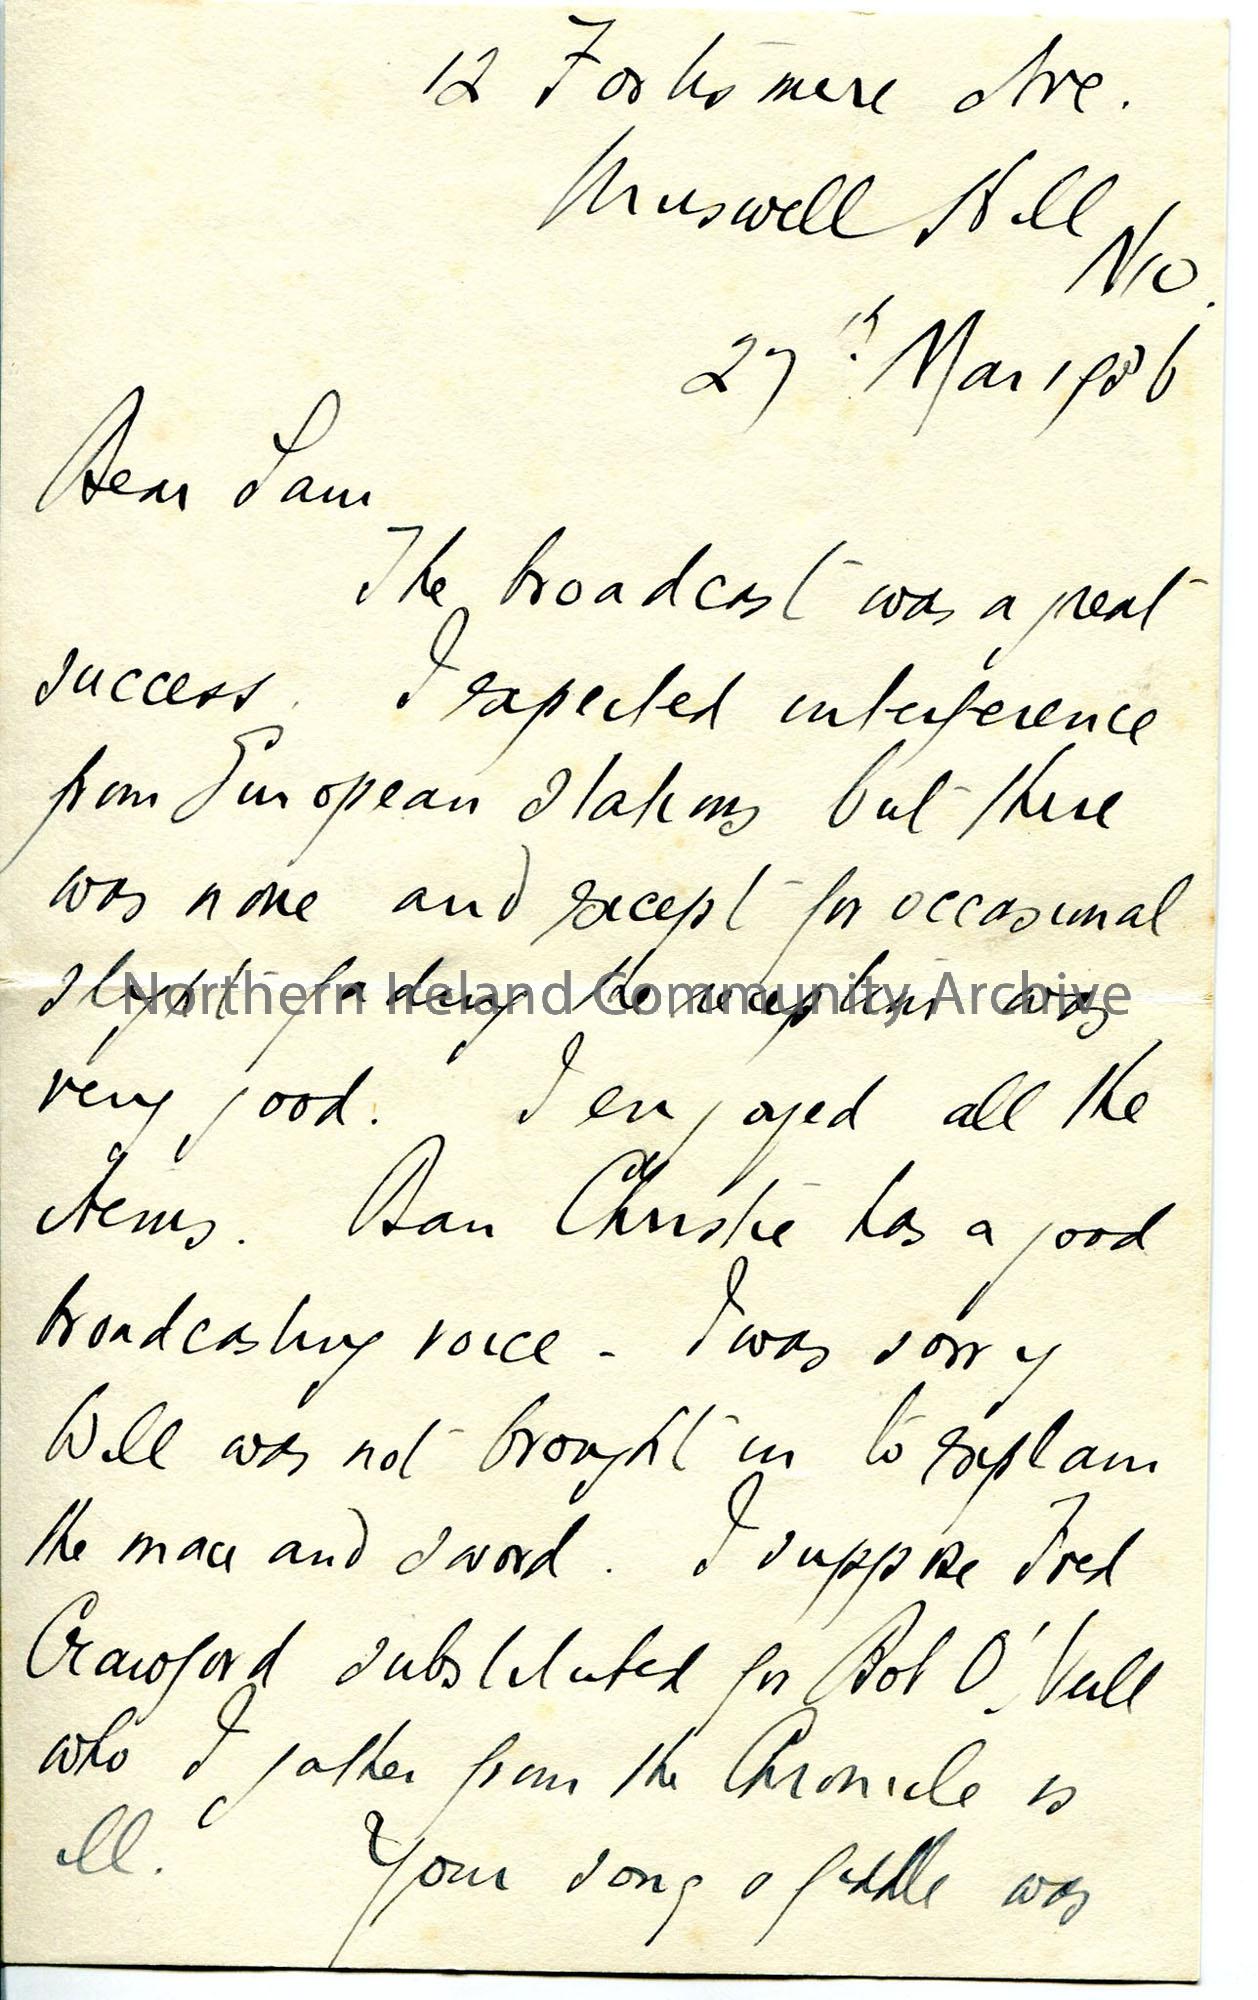 12 Fortismere Ave.
Muswell Hill
N10.
27th Mar 1936
Dear Sam
The broadcast was a great
success. I expected interference
from European stations but there
was none and except for occasional
slight fading the reception was
Northern Ireland Community Archive
very good. I enjoyed all the
items. Dan Christie has a good
broadcasting voice - I was sorry
Will was not brought in to explain
the mace and sword. I suppose Fred
Crawford substituted for Bob O'Neill
who I gather from the Chronicle is
ill. Your song & fiddle was